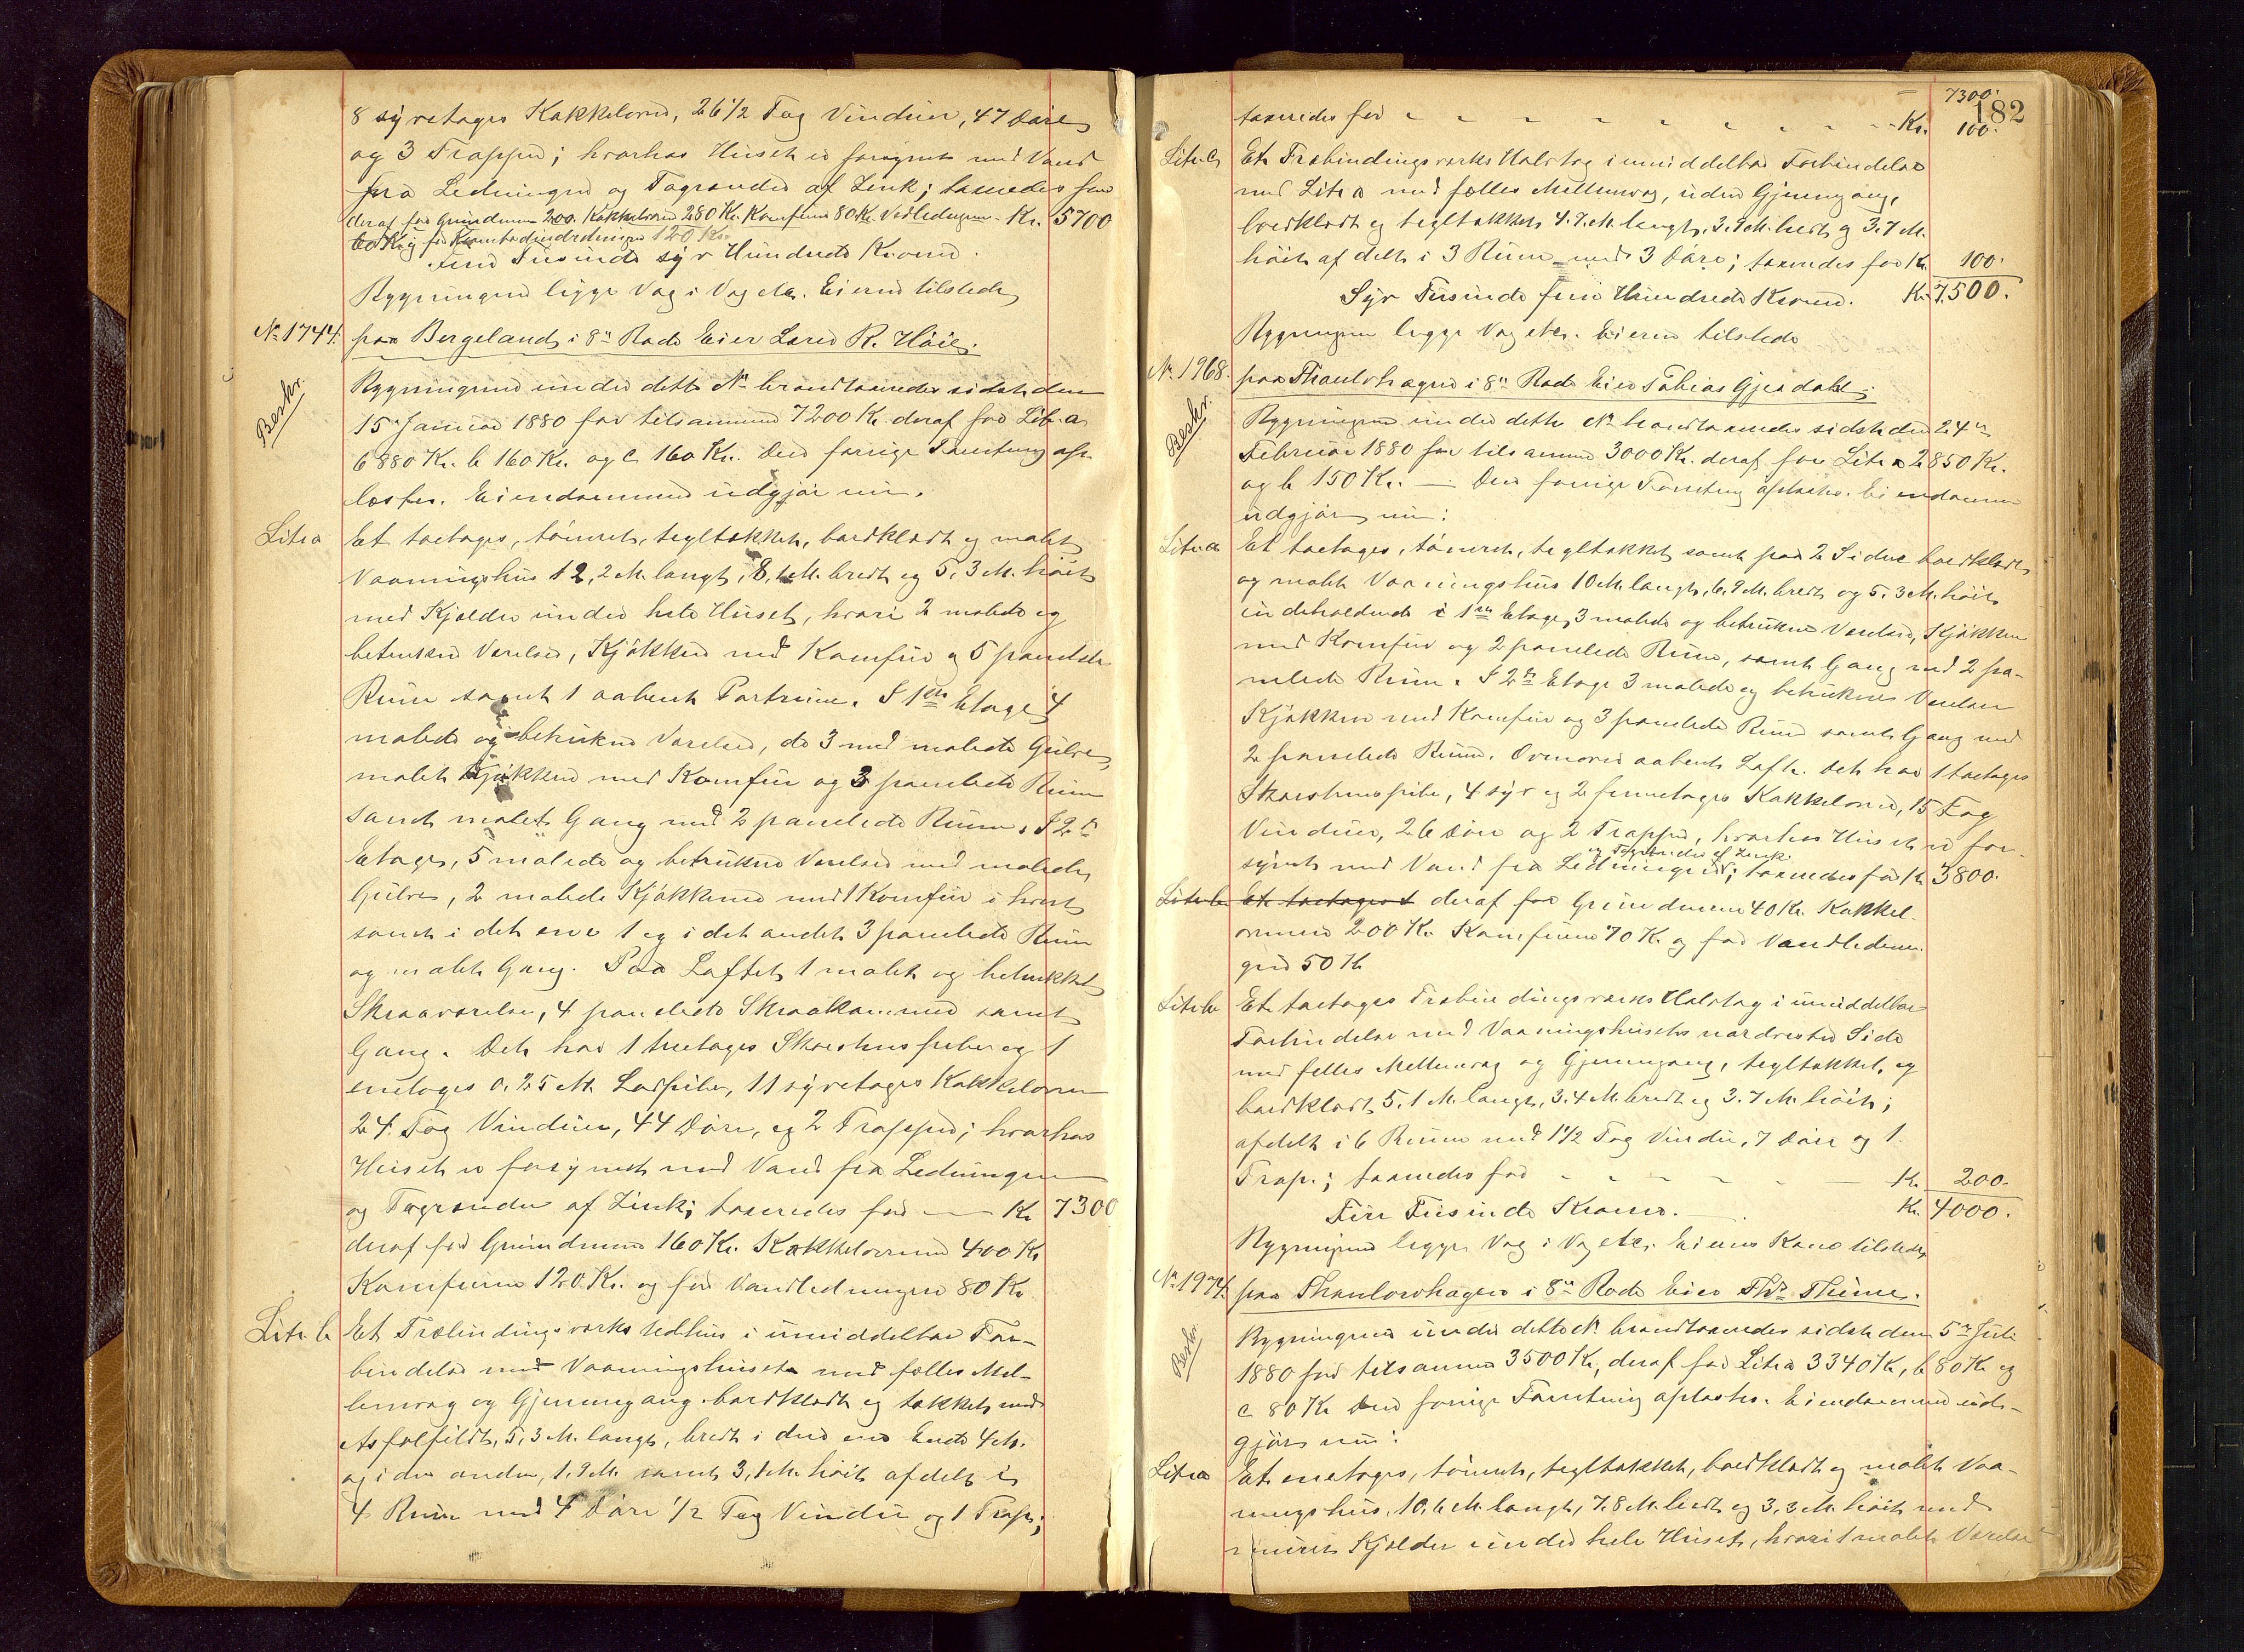 8 syvetages Kakkelovne, 26 1/2 Fag Vinduer, 47 Döre
og 3 Trapper; hvorhos Huset er forsynet med Vand
fra Ledningen og Tagrender af Zink; taxeredes for
deraf for Grundmuren 200. Kakkelovne 280 Kr. Komfurer 80 Kr. Vedledningen - Kr. 5700
60 Kr. og for 120 Kr.
Fem Tusinde syv Hundrede Kroner.
Bygningen ligger Væg i Væg etc. Eieren tilstede
No 1744. paa Bergeland i 8de Rode Eier Lars R. Höie.
Beskr.
Bygningerne under dette No brandtaxeredes sidst den
15de Januar 1880 for tilsammen 7200 Kr. deraf for Litr. a
6880 Kr. b 160 Kr. og c 160 Kr. Den forrige Taxtering op-
læstes. Eiendommen udgjör nu.
Litr a Et toetages, tömret, tegltækket, bordklædt og malet
Vaaningshus 12,2 M. langt, 8,1 M. bredt og 5,3 M. höit
med Kjælder under hele Huset, hvori 2 malede og
betrukne Værelser, Kjökken med Komfur og 5 panelede
Rum samt 1 aabent Portrum. I 1ste Etage 4
malede og betrukne Værelser, de 3 med malede Gulve,
malet Kjökken med Komfur og 3 panelede Rum
samt malet Gang med 2 panelede Rum, I 2den
Etage, 5 malede og betrukne Værelser med malede
Gulve, 2 malede Kjökkener med 1 Komfur i hvert
samt i det ene 1 og i det andet 3 panelede Rum
og malet Gang. Paa Loftet 1 malet og betrukket
Skraaværelse, 4 panelede Skraakammere samt
Gang. Det har 1 treetages Skorstenspibe og 1
enetages 0.25 M. Lodpibe, 11 syvetages Kakkelovne
24. Fag Vinduer, 44 Döre, og 2 Trapper; hvorhos
Huset er forsynet med Vand fra Ledningen
og Tagrender af Zink; taxeredes for — Kr 7300
deraf for Grundmuren 160 Kr. Kakkelovnene 400 Kr
Komfurene 120 Kr. og for Vandledningen 80 Kr.
Litr. b Et Træbindingsværks Udhus i umiddelbar For-
bindelse med Vaaningshuset med fælles Mel-
lemvæg og Gjennemgang. bordklædt og tækket med
Asfaltfildt, 5,3 M. langt, bredt i den ene Ende 4 M.
og i den anden, 1,9 M. samt 3,1 M. höit afdelt i
4 Rum med 4 Döre 1/2 Fag Vindu og 1 Trap;
7300.
182
taxeredes for - - - - Kr. 100.
Litr. c Et Træbindingsværks Halvtag i umiddelbar Forbindelse
med Litr a med fælles Mellemvæg, uden Gjennemgang,
bordklædt og tegltækket 4.7 M. langt, 3.9 M. bredt og 3.7 M.
höit afdelt i 3 Rum med 3 Döre; taxeredes for Kr. 100.
Syv Tusinde fem Hundrede Kroner. Kr. 7,500.
Bygningen ligger Væg etc. Eieren tilstede
No 1968. paa Thaulovhagen i 8de Rode Eier Tobias Gjesdahl.
Beskr.
Bygningerne under dette No brandtaxeredes sidst den 24de
Februar 1880 for tilsammen 3000 Kr. deraf for Litr a 2850 Kr.
og b 150 Kr. — Den forrige Taxtering oplæstes. Eiendommen
udgjör nu:
Litr. a Et toetages, tömret, tegltækket samt paa 2 Sider bordklædt
og malet Vaaningshus 10 M. langt, 6.9 M. bredt og 5.3 M. höit
indeholdende i 1ste Etage, 3 malede og betrukne Værelser, Kjökken
med Komfur og 2 panelede Rum, samt Gang med 2 pa-
nelede Rum. I 2den Etage 3 malede og betrukne Værelser
Kjökken med Komfur og 3 panelede Rum samt Gang med
2 panelede Rum. Ovenover aabent Loft. Det har 1 toetages
Skorstenspibe, 4 syv og 2 femetages Kakkelovne, 15 Fag
Vinduer, 26 Döre og 2 Trapper, hvorhos Huset er for-
og Tagrender af Zink
synet med Vand fra Ledningen; taxeredes for Kr 3800.
Litr b Et toetages deraf for Grundmuren 40 Kr. Kakkel-
ovnene 200 Kr. Komfurene 70 Kr og for Vandlednin-
gen 50 Kr
Litr b Et toetages Træbindingsværks Halvtag i umiddelbar
Forbindelse med Vaaningshusets nordvestre Side
med fælles Mellemvæg og Gjennemgang, tegltækket, og
bordklædt 5.1 M. langt, 3.4 M. bredt og 3.7 M. höit;
afdelt i 6 Rum med 1 1/2 Fag Vindu, 7 Döre og 1
Trap.; taxeredes for - - - - Kr. 200.
Fire Tusinde Kroner. Kr. 4000.
Bygningerne ligger Væg i Væg etc. Eierens Kone tilstede
No 1974. paa Thaulovhagen i 8de Rode Eier Ths Thime.
Beskr.
Bygningerne under dette No brandtaxeredes sidst den 5te Juli
1880 for tilsammen 3500 Kr, deraf for Litr a 3340 Kr, b 80 Kr og
c 80 Kr Den forrige Taxtering oplæstes. Eiendommen ud-
gjör nu:
Litr a Et enetages, tömret, tegltækket, bordklædt og malet Vaa-
ningshus, 10.6 M. langt, 7.8 M. bredt og 3,3 M. höit med
muret Kjælder under hele Huset, hvori 1 malet Værelse